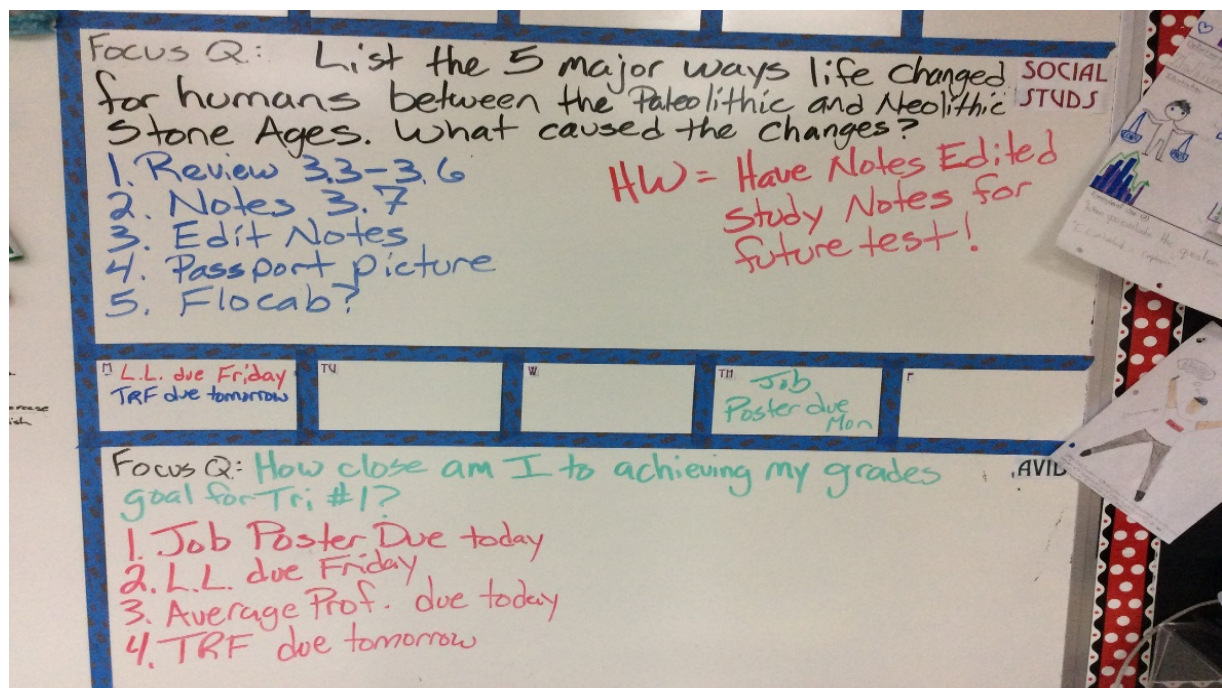 Focus Q: List the 5 major ways life changed
for humans between the Paleolithic and Neolithic
Stone Ages. What caused the changes?
SOCIAL
STUDS
1. Review 3.3-3.6
2. Notes 3.7
3. Edit Notes
4. Passport picture
5. Flocab?
HW = Have Notes Edited
Study Notes for
future test!
M L.L. due Friday
TRF due tomorrow
TU
W
TH Job
Poster due
Mon
F
Focus Q: How close am I to achieving my grades
goal for Tri #1?
AVID
1. Job Poster Due today
2. L.L. due Friday
3. Average Prof. due today
4. TRF due tomorrow